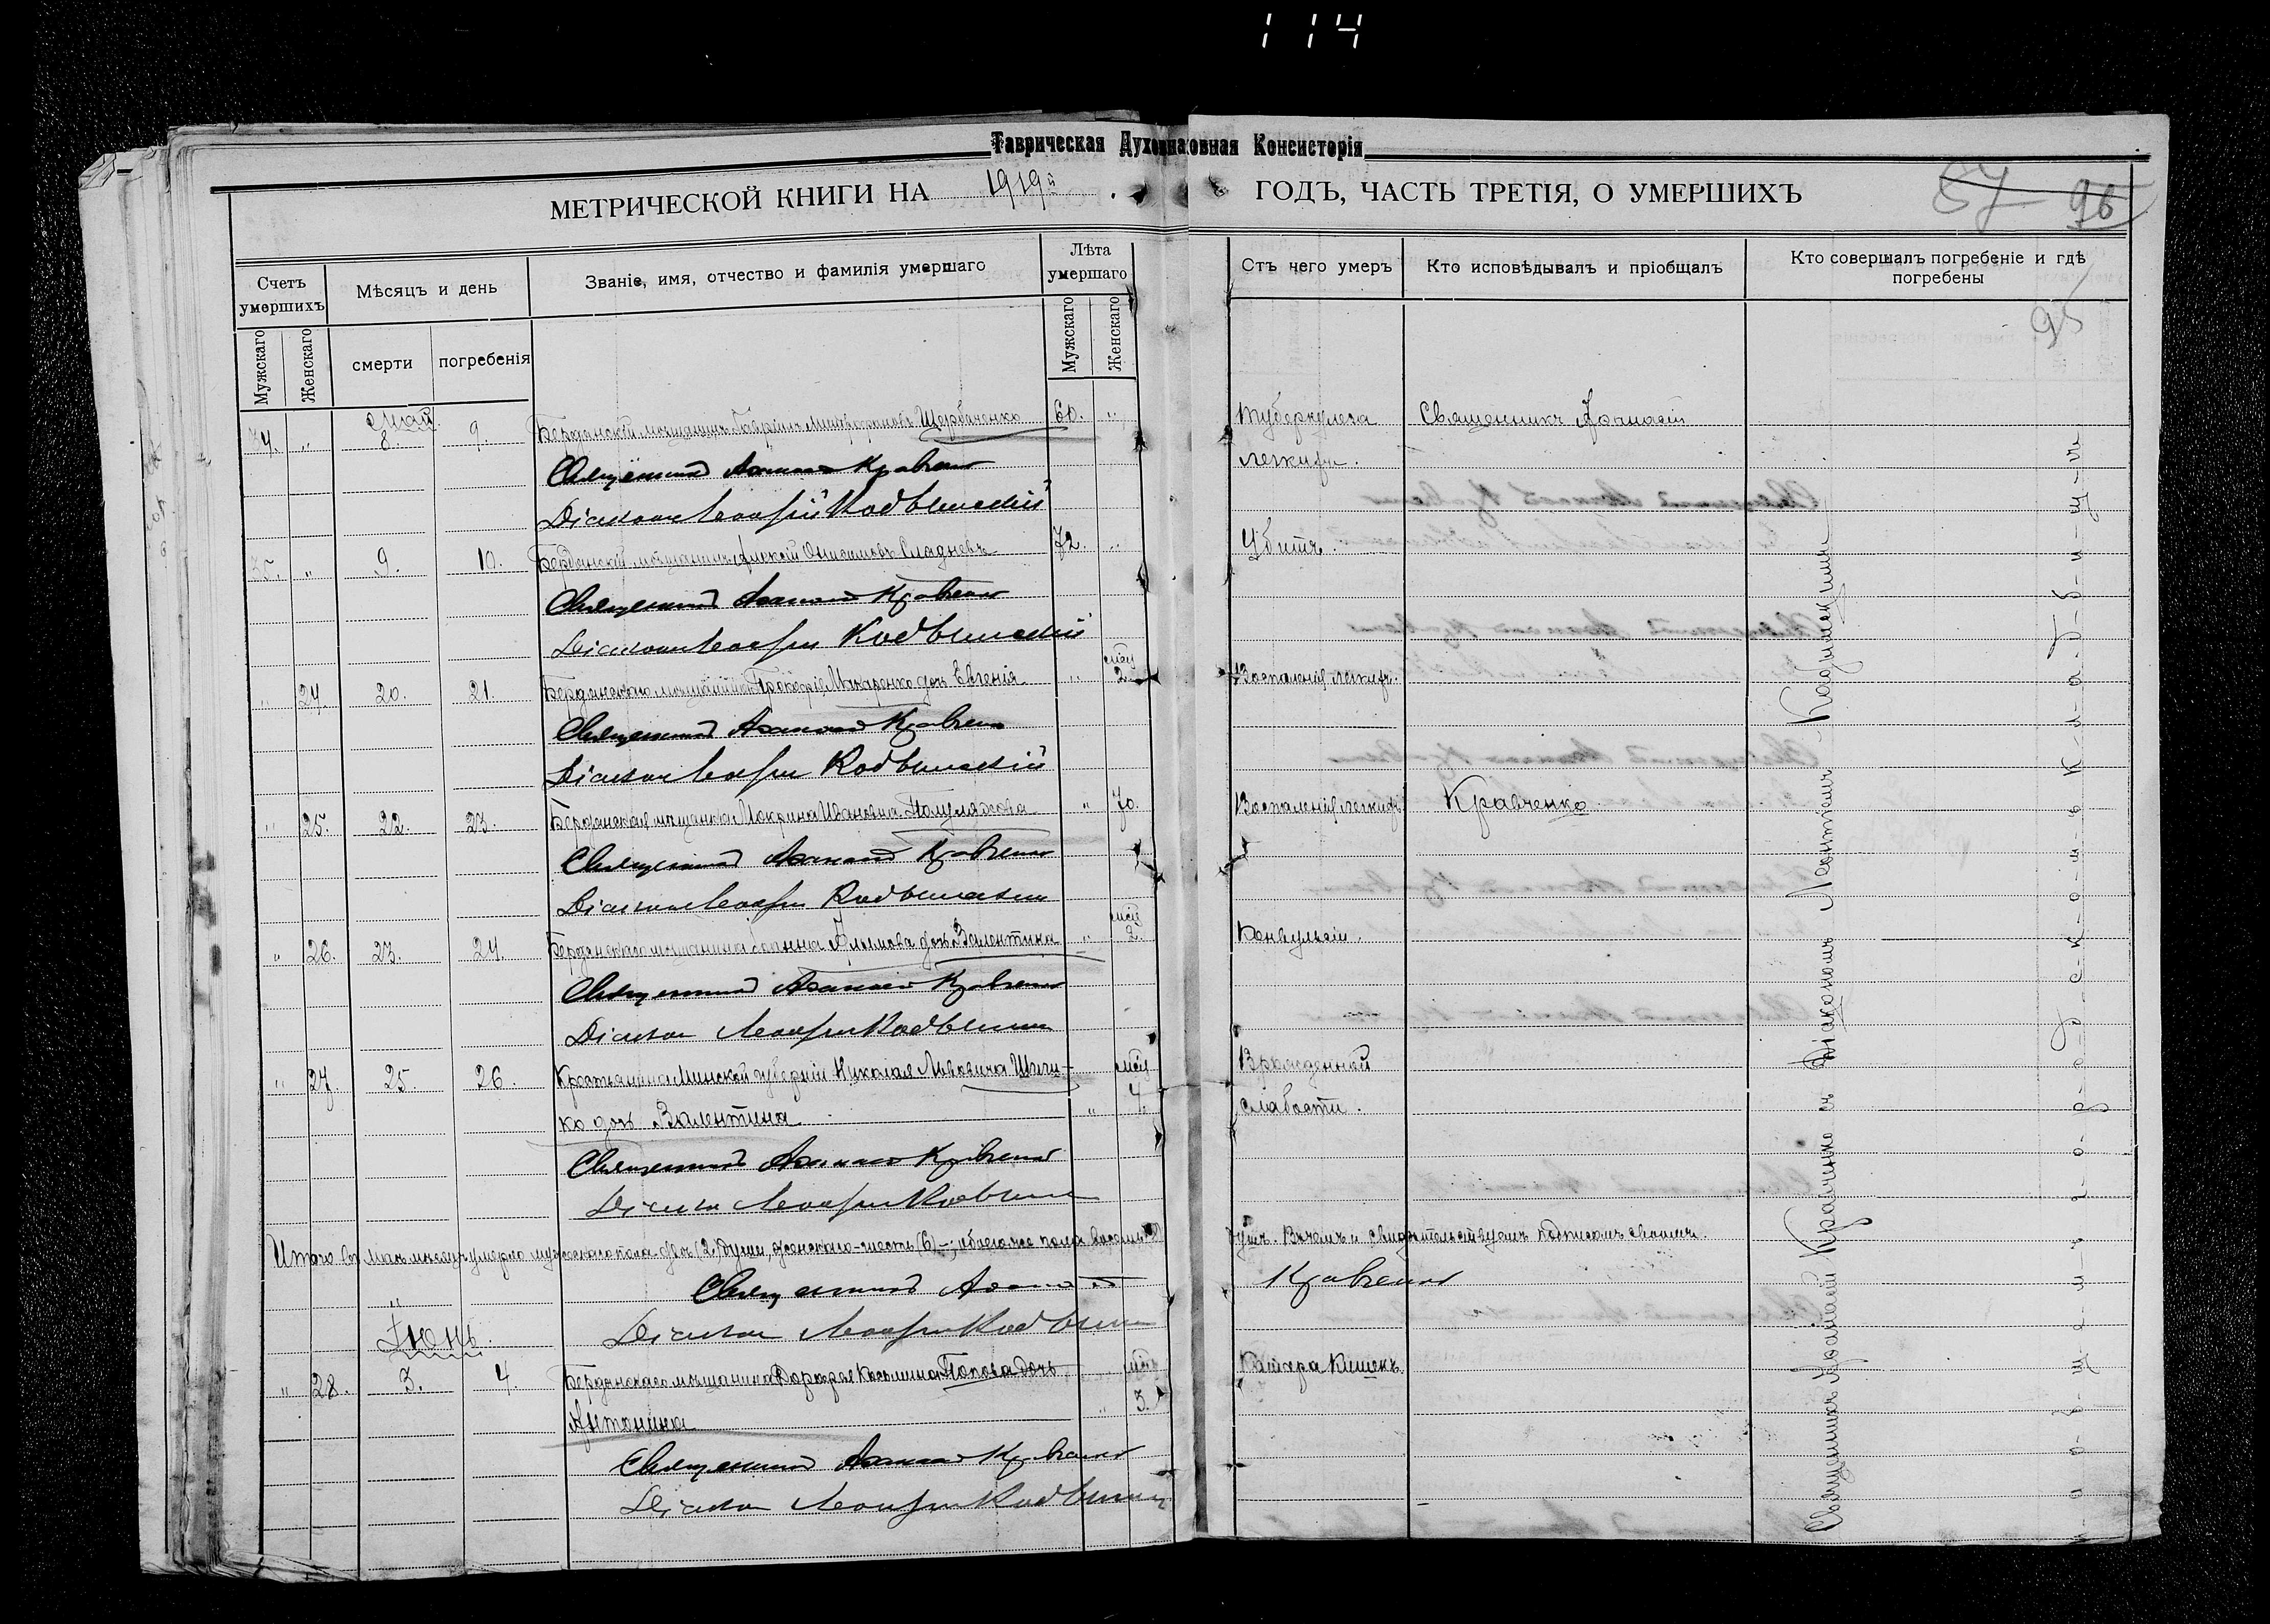 114
Таврическая Духовная Консисторія
МЕТРИЧЕСКОЙ КНИГИ НА 1919й ГОДЪ, ЧАСТЬ ТРЕТІЯ, О УМЕРШИХЪ
57 96
95
Счетъ умершихъ
Мѣсяцъ и день
Званіе, имя, отчество и фамилія умершаго
Лѣта умершаго
Отъ чего умеръ
Кто исповѣдывалъ и пріобщалъ
Кто совершалъ погребеніе и гдѣ погребены
Мужскаго
Женскаго
смерти
погребенія
Мужскаго
Женскаго
Май
74. " 8. 9. Бердянскій мѣщанинъ Гавріилъ Митрофановъ Щербаченко 60. " Туберкулеза Священникъ Афанасій
легкихъ.
Священникъ Афанасій Кравченко
Діаконъ Леонтій Кодымскій
75. " 9. 10. Бердянскій мѣщанинъ Алексій Онисимовъ Сладневъ 72. " Убитъ.
Священникъ Афанасій Кравченко
Діаконъ Леонтій Кодымскій
мѣс.
" 24. 20. 21. Бердянскаго мѣщанина Прокофія Макаренко дочь Евгенія " 2. Воспаленія легкихъ.
Священникъ Афанасій Кравченко
Діаконъ Леонтій Кодымскій
" 25. 22. 23. Бердянская мѣщанка Макрина Ивановна " 70. Воспаленія легкихъ Кравченко.
Священникъ Афанасій Кравченко
Діаконъ Леонтій Кодымскій
мѣс.
" 26. 23. 24. Бердянскаго мѣщанина Іоанна дочь Валентина " 2. Конвульсіи.
Священникъ Афанасій Кравченко
Діаконъ Леонтій Кодымскій
" 27. 25. 26. Крестьянина Минской губерніи Николая Львовича мѣс. Врожденной
ко дочь Валентина " 4. слабости.
Священникъ Афанасій Кравченко
Діаконъ Леонтій Кодымскій
Итого въ маѣ мѣсяцѣ умерло мужескаго пола двѣ (2) души, женскаго - шесть (6) -, обоего же пола восемь (8) душъ. Въ чемъ и свидѣтельствуемъ подписомъ своимъ.
Священникъ Афанасій Кравченко
Діаконъ Леонтій Кодымскій
Іюнь.
" 28. 3. 4. Бердянскаго мѣщанина Попова дочь мѣс. Катара кишекъ.
Антонина " 3.
Священникъ Афанасій Кравченко
Діаконъ Леонтій Кодымскій
Священникъ Афанасій Кравченко съ Діакономъ Леонтіемъ Кодымскимъ
на общемъ городскомъ кладбищѣ